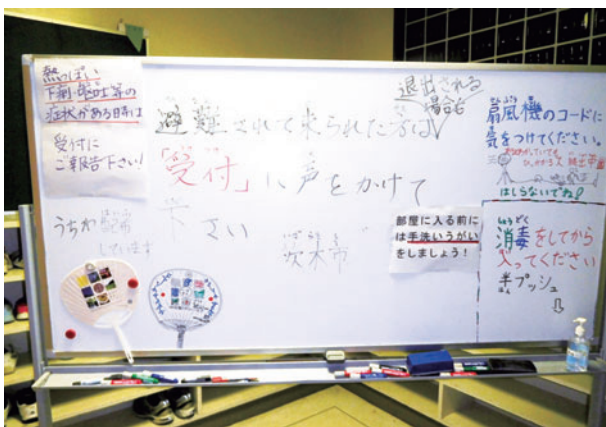 熱っぽい
下痢・嘔吐等の
症状がある時は
受付に
ご報告下さい!
退出される
場合も
避難されて来られた方は
「受付」に声をかけて
下さい
茨木市
うちわ配布
しています
部屋に入る前に
は手洗いうがい
をしましょう!
扇風機のコードに
気をつけてください。
はしらないでね!
消毒をしてから
入ってください
半プッシュ